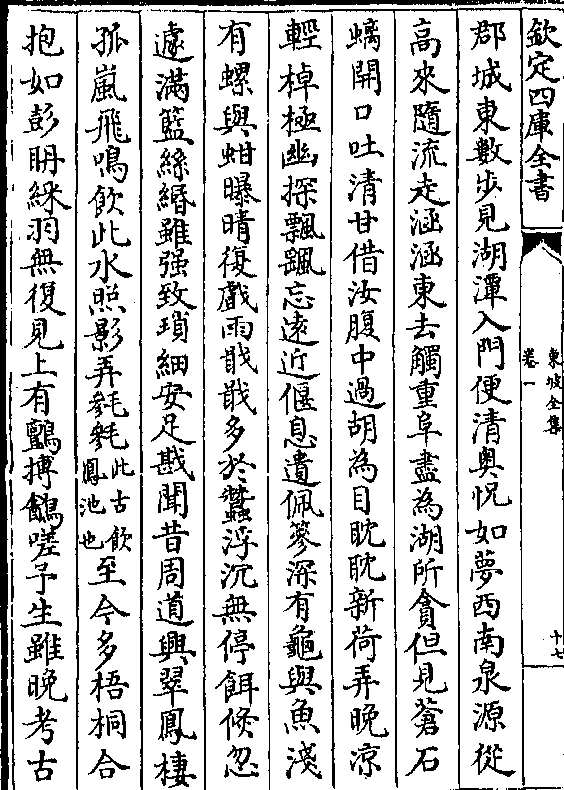 欽定四庫全書
東坡全集
卷一
十七
郡城東數步見湖潭入門便清奧怳如夢西南泉源從
高來隨流走涵涵東去觸重阜盡為湖所貪但見蒼石
螭開口吐清甘借汝腹中過胡為目眈眈新荷弄晚涼
輕棹極幽探飄颻忘遠近偃息遺佩篸深有龜與魚淺
有螺與蚶曝晴復戲雨戢戢多於蠶浮沉無停餌倏忽
遽滿籃絲緡雖强致瑣細安足戡聞昔周道興翠鳳棲
孤嵐飛鳴飲此水照影弄毿毿此古飲鳳池也至今多梧桐合
抱如彭聃綵羽無復見上有鸇搏䳺嗟予生雖晚考古